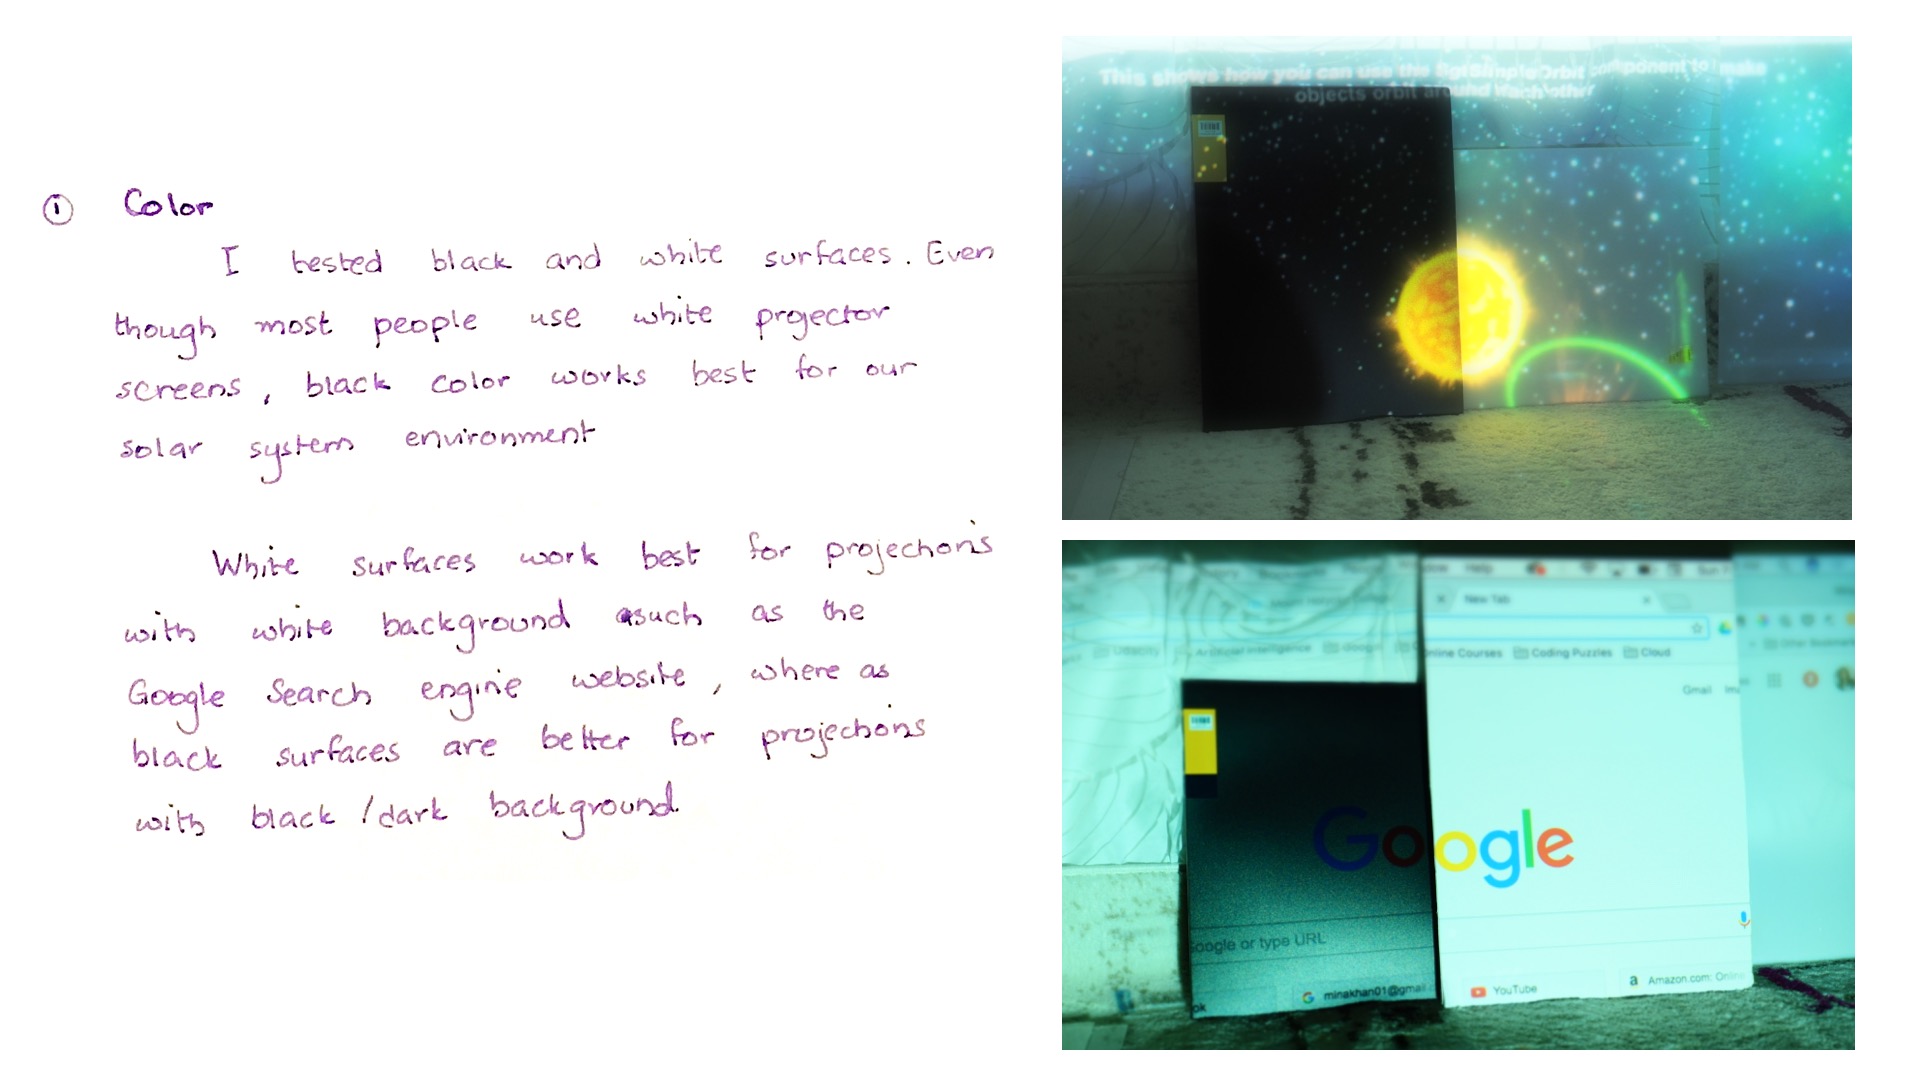 ① Color
I tested black and white surfaces. Even
though most people use white projector
screens, black color works best for our
solar system environment
White surfaces work best for projections
with white background asuch as the
Google Search engine website, where as
black surfaces are better for projections
with black/dark background.
This shows how you can use the SgtSimpleOrbit component to make
objects orbit around each other
Help
New Tab
Artificial Intelligence
Online Courses Coding Puzzles Cloud
Other Bookmarks
Gmail
Google
Google or type URL
minakhan01@gmail
YouTube
a Amazon.com: Online